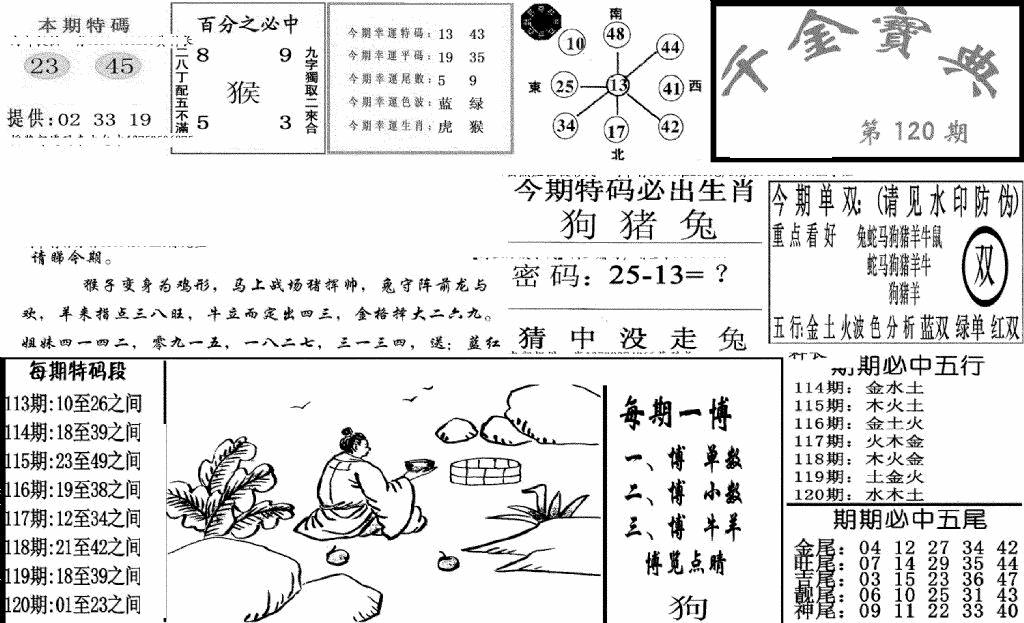 本期特碼
23 45
提供:02 33 19
百分之必中
二八丁配五不滿
8 9
猴
5 3
九字獨取二來合
今期幸運特碼: 13 43
今期幸運平碼: 19 35
今期幸運尾數: 5 9
今期幸運色波: 蓝 绿
今期幸運生肖: 虎 猴
南
48
10
44
東
25
13
41
西
34
17
42
北
金寶典
第120期
请睇今期。
猴子变身为鸡形,马上战场猪挥帅,兔守阵前龙与
欢,羊来指点三八旺,牛立而定出四三,金格择大二六九。
姐妹四一四二,零九一五,一八二七,三一三四,送:蓝红
今期特码必出生肖
狗 猪 兔
密码:25-13=?
猜 中 没 走 兔
今期单双:(请见水印防伪)
重点看好
兔蛇马狗猪羊牛鼠
蛇马狗猪羊牛
狗猪羊
双
五行:金土火波色分析 蓝双 绿单 红双
每期特码段
113期:10至26之间
114期:18至39之间
115期:23至49之间
116期:19至38之间
117期:12至34之间
118期:21至42之间
119期:18至39之间
120期:01至23之间
每期一博
一、博 单数
二、博 小数
三、博 牛羊
博览点睛
狗
期期必中五行
114期: 金水土
115期: 木火土
116期: 金土火
117期: 火木金
118期: 木火金
119期: 土金火
120期: 水木土
期期必中五尾
金尾: 04 12 27 34 42
旺尾: 07 14 29 35 44
吉尾: 03 15 23 36 47
靓尾: 06 10 25 31 43
神尾: 09 11 22 33 40